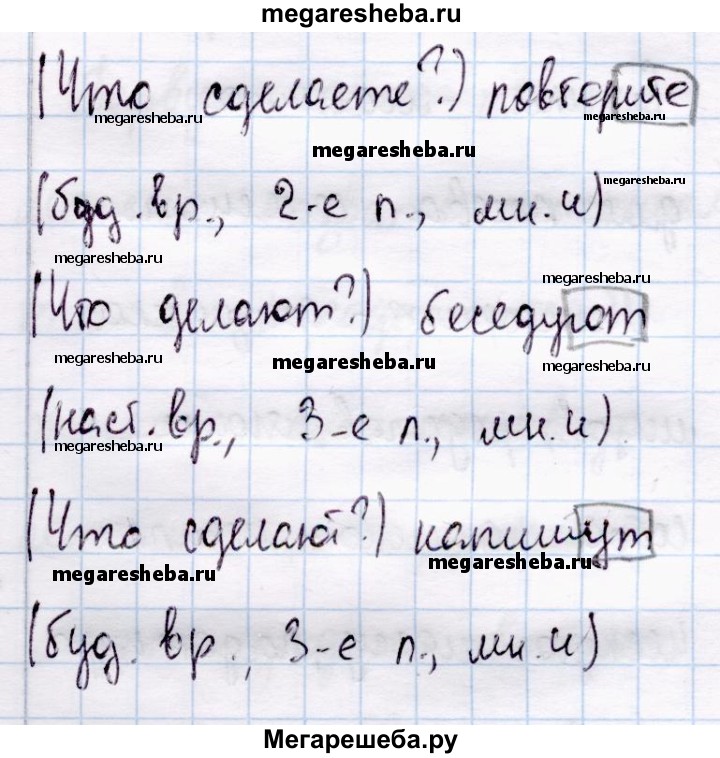 megaresheba.ru
(Что сделаете?) повторите
megaresheba.ru megaresheba.ru
megaresheba.ru
megaresheba.ru
(буд.вр., 2-е л., мн.ч)
megaresheba.ru
megaresheba.ru
(Что делают?) беседуют
megaresheba.ru megaresheba.ru megaresheba.ru
(наст.вр., 3-е л., мн.ч)
megaresheba.ru
(Что сделают?) напишут
megaresheba.ru megaresheba.ru
(буд. вр., 3-е л., мн.ч)
Мегарешеба.ру